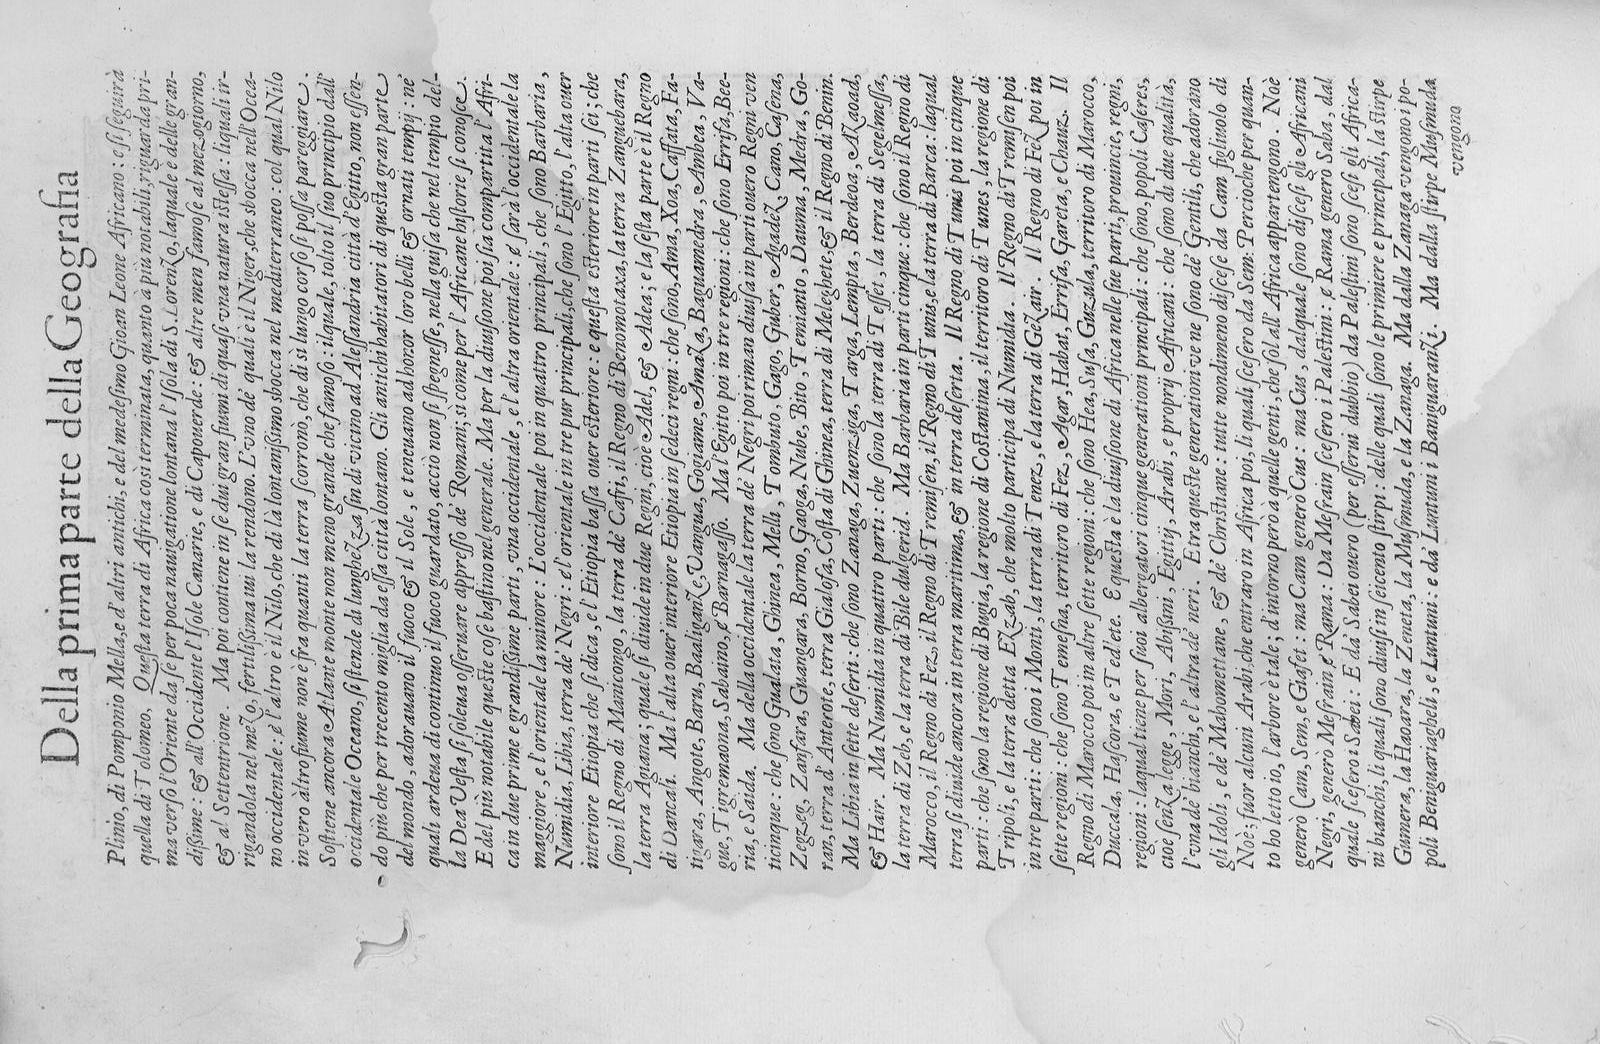 Della prima parte della Geografia
Plinio, di Pomponio Mella, e d'altri antichi, e del medesimo Gioan Leone Africano: essi seguirà
quella di Tolomeo. Questa terra di Africa così terminata, quanto à più notabili, riguarda pri-
ma verso l'Oriente da se per poca nauigatione lontana l'Isola di S. Lorenzo, laquale è delle gran-
dißime: & all'Occidente l'Isole Canarie, e di Capouerde: & altre men famose al mezogiorno,
& al Settentrione. Ma poi contiene in se dui gran fiumi di quasi vna natura istessa: liquali ir-
rigandola nel mezo, fertilißima ui la rendono. L'vno dè quali è il Niger, che sbocca nell'Ocea-
no occidentale: è l'altro è il Nilo, che di la lontanißimo sbocca nel mediterraneo: col qual Nilo
in vero altro fiume non è fra quanti la terra scorronò, che di sì lungo corso si possa pareggiare.
Sostiene ancora Atlante monte non meno grande che famoso: ilquale, tolto il suo principio dall'
occidentale Oceano, si stende di lunghezza fin di vicino ad Alessandria città d'Egitto, non essen-
do più che per trecento miglia da essa città lontano. Gli antichi habitatori di questa gran parte
del mondo, adorauano il fuoco & il Sole, e teneuano ad honor loro belli & ornati tempij: nè
quali ardeua di continuo il fuoco guardato, acciò non si spegnesse, nella guisa che nel tempio del-
la Dea Vesta si soleua osseruare appresso dè Romani; si come per l'Africane historie si conosce.
E del più notabile queste cose bastino nel generale. Ma per la diuisione poi sta compartita l'Afri-
ca in due prime e grandißime parti, vna occidentale, e l'altra orientale: e sarà l'occidentale la
maggiore, e l'orientale la minore: L'occidentale poi in quatro principali, che sono Barbaria,
Numidia, Libia, terra dè Negri: el'orientale in tre pur principali, che sono l'Egitto, l'alta ouer
interiore Etiopia che si dica, e l'Etiopia bassa ouer esteriore: e questa esteriore in parti sei; che
sono il Regno di Manicongo, la terra dè Cafri, il Regno di Benomotaxa, la terra Zanguebara,
la terra Aguana; quale si diuide in due Regni, cioè Adel, & Adea; e la sesta parte è il Regno
di Dancali. Ma l'alta ouer' interiore Etiopia in sedeci regni: che sono, Ama, Xoa, Caffata, Fa-
tigara, Angote, Baru, Baaliganze, Vangua, Gogiame, Amaza, Baguamedra, Ambea, Va-
gue, Tigremaona, Sabaino, e Barnagasso. Ma l'Egitto poi in tre regioni: che sono Errifa, Bee-
ria, e Saida. Ma della occidentale la terra dè Negri poi riman diuisa in parti ouero Regni ven
ticinque: che sono Gualata, Ghinea, Melli, Tombuto, Gago, Guber, Agadez, Cano, Casena,
Zegzeg, Zanfara, Guangara, Borno, Gaoga, Nube, Bito, Temiano, Dauma, Medra, Go-
ran, terra d'Anterote, terra Gialofa, Costa di Ghinea, terra di Meleghete, & il Regno di Benin.
Ma Libia in sette deserti: che sono Zanaga, Zuenziga, Targa, Lempta, Berdoa, Azoad,
& Hair. Ma Numidia in quattro parti: che sono la terra di Tesset, la terra di Segelmessa,
la terra di Zeb, e la terra di Bile dulgerid. Ma Barbaria in parti cinque: che sono il Regno di
Marocco, il Regno di Fez, il Regno di Tremisen, il Regno di Tunis, e la terra di Barca: laqual
terra si diuide ancora in terra maritima, & in terra deserta. Il Regno di Tunis poi in cinque
parti: che sono la regione di Bugia, la regione di Costantina, il territoro di Tunes, la regione di
Tripoli, e la terra detta Ezzab, che molto participa di Numidia. Il Regno di Tremisen poi
in tre parti: che sono i Monti, la terra di Tenez, e la terra di Gezair. Il Regno di Fez poi in
sette regioni: che sono Temesna, territoro di Fez, Azar, Habat, Errifa, Gareta, e Chauz. Il
Regno di Marocco poi in altre sette regioni: che sono Hea, Susa, Guzula, territoro di Marocco,
Duccala, Hascora, e Tedlete. E questa è la diuisione di Africa nelle sue parti, prouincie, regni,
regioni: laqual tiene per suoi albergatori cinque generationi principali: che sono, popoli Caseres,
cioe senza legge, Mori, Abißini, Egittij, Arabi, e proprij Africani: che sono di due qualità,
l'vna dè bianchi, e l'altra dè neri. Et ra queste generationi ve ne sono dè Gentili, che adorano
gli Idoli, e dè Mahomettane, & dè Christiane: tutte nondimeno discese da Cam figliuolo di
Noè; fuor alcuni Arabi, che entraro in Africa poi, li quali scesero da Sem: Percioche per quan-
to ho letto io, l'arbore è tale; d'intorno però à quelle genti, che sol all'Africa appartengono. Noè
generò Cam, Sem, e Giafet: ma Cam generò Cus: ma Cus, dalquale sono discesi gli Africani
Negri, generò Mesraim, e Rama: Da Mesraim scesero i Palestini: e Rama generò Saba, dal
quale scesero i Sabei: E dà Sabei ouero (per esserui dubbio) da Palestini sono scesi gli Africa-
ni bianchi, li quali sono diuisi in seicento stirpi: delle quali sono le primiere e principali, la stirpe
Gumera, la Haoara, la Zeneta, la Musmuda, e la Zanaga. Ma dalla Zanaga vengono i po-
poli Beniguariagheli, e Luntuni: e dà Luntuni i Baniguaranzi. Ma dalla stirpe Musmuda
vengono